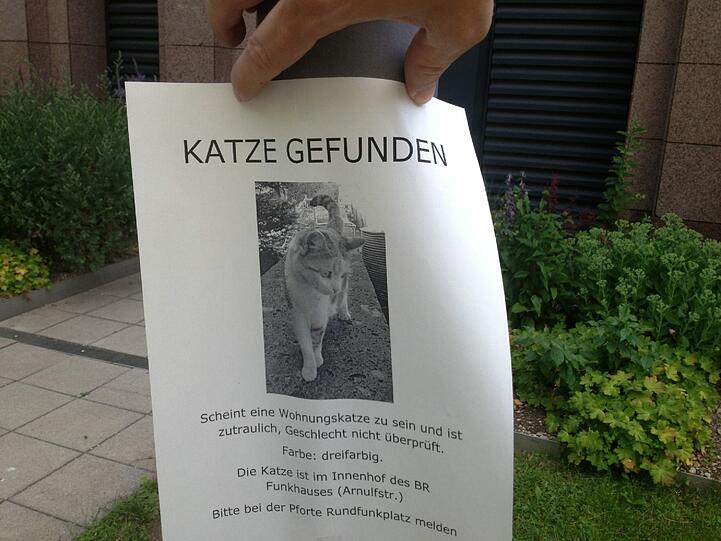 KATZE GEFUNDEN
Scheint eine Wohnungskatze zu sein und ist
zutraulich, Geschlecht nicht überprüft.
Farbe: dreifarbig.
Die Katze ist im Innenhof des BR
Funkhauses (Arnulfstr.)
Bitte bei der Pforte Rundfunkplatz melden